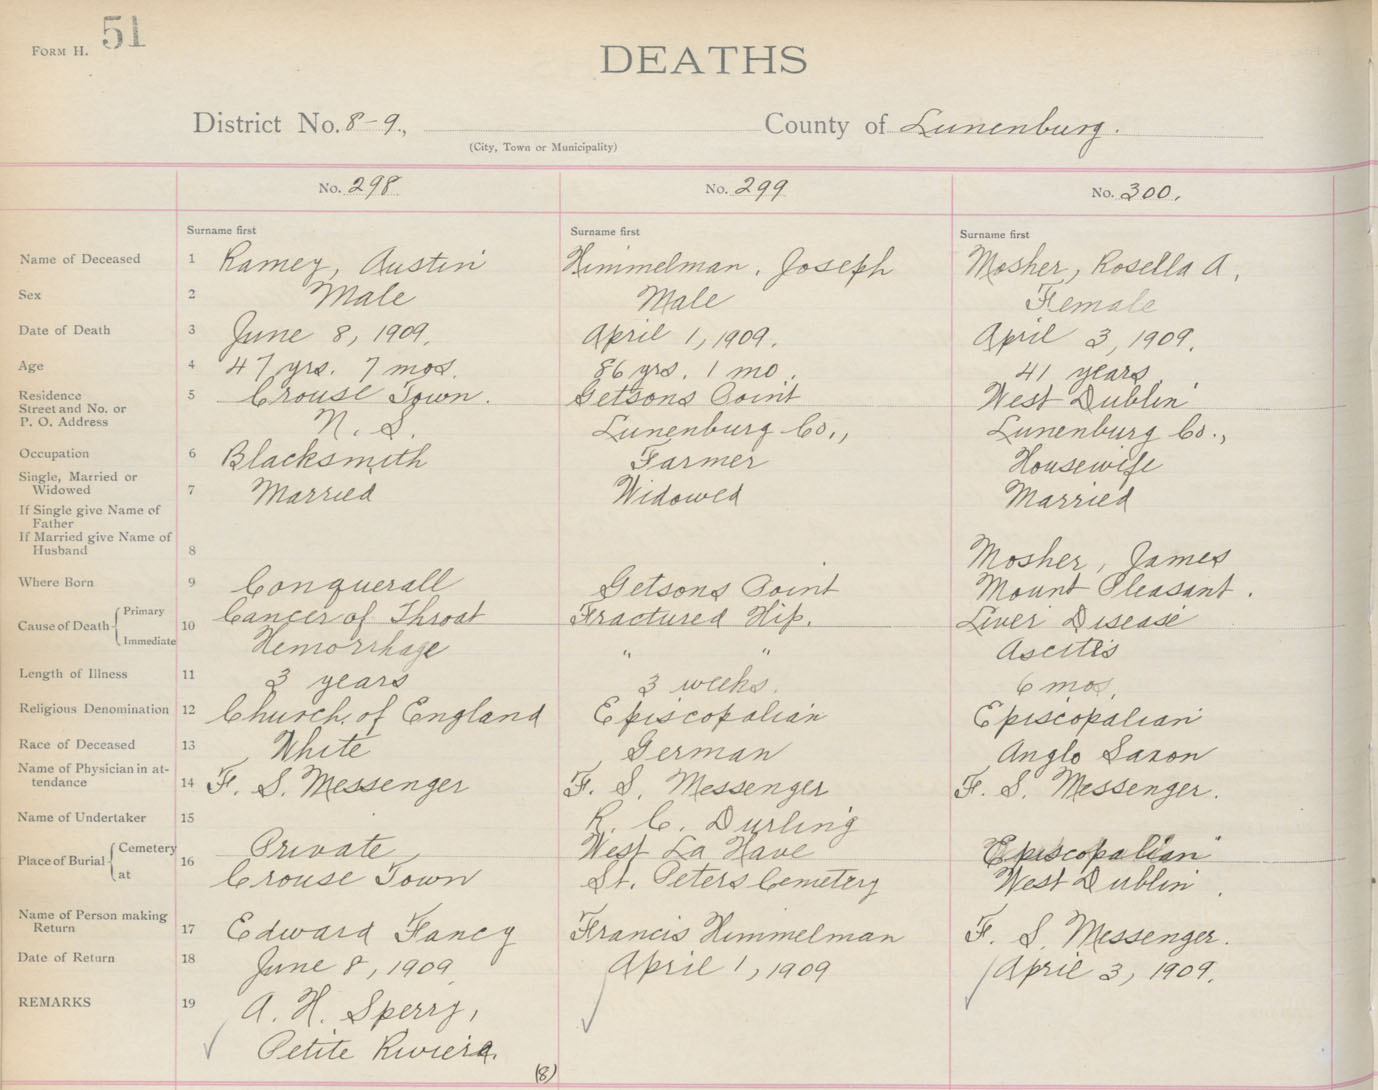 FORM H. 51
DEATHS
District No. 8-9., County of Lunenburg.
(City, Town or Municipality)
No. 298 No. 299 No. 300.
Surname first Surname first Surname first
Name of Deceased 1 Ramey, Austin Himmelman, Joseph Mosher, Rosella A.
Sex 2 Male Male Female
Date of Death 3 June 8, 1909. April 1, 1909. April 3, 1909.
Age 4 47 yrs. 7 mos. 86 yrs. 1 mo. 41 years
Residence 5 Crouse Town. Getsons Point West Dublin
Street and No. or
P. O. Address N. S. Lunenburg Co., Lunenburg Co.,
Occupation 6 Blacksmith Farmer Housewife
Single, Married or
Widowed 7 Married Widowed Married
If Single give Name of
Father
If Married give Name of
Husband 8 Mosher, James
Where Born 9 Conquerall Getsons Point Mount Pleasant.
Cause of Death 10 Primary Cancer of Throat Fractured Hip. Liver Disease
Immediate Hemorrhage " " Ascites
Length of Illness 11 3 years 3 weeks. 6 mos.
Religious Denomination 12 Church of England Episcopalian Episcopalian
Race of Deceased 13 White German Anglo Saxon
Name of Physician in at-
tendance 14 F. S. Messenger F. S. Messenger F. S. Messenger.
Name of Undertaker 15 R. C. Durling
Place of Burial 16 Cemetery Private West La Have Episcopalian
at Crouse Town St. Peters Cemetery West Dublin.
Name of Person making
Return 17 Edward Fancy Francis Himmelman F. S. Messenger.
Date of Return 18 June 8, 1909 April 1, 1909 April 3, 1909.
REMARKS 19 A. H. Sperry,
Petite Riviera.
(8)